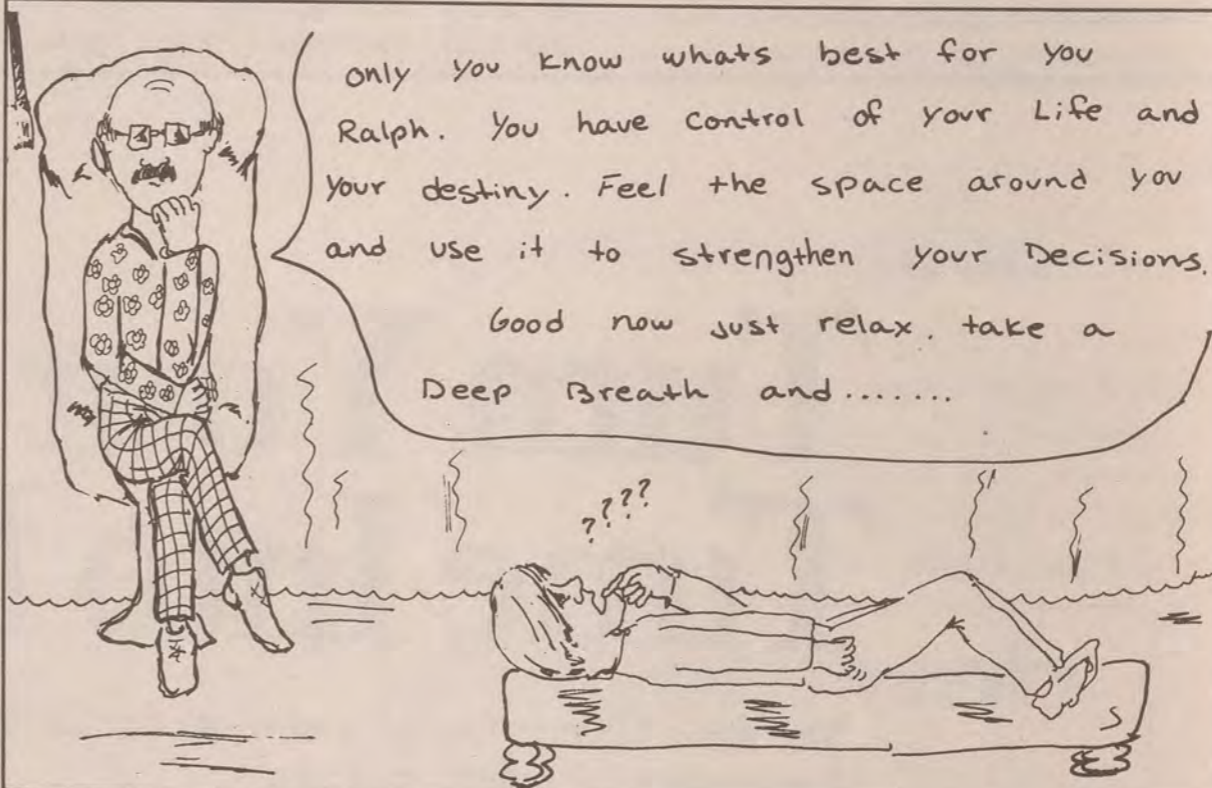 only you know whats best for you
Ralph. You have control of your Life and
your destiny. Feel the space around you
and use it to strengthen your Decisions.
Good now just relax. take a
Deep Breath and.......
????